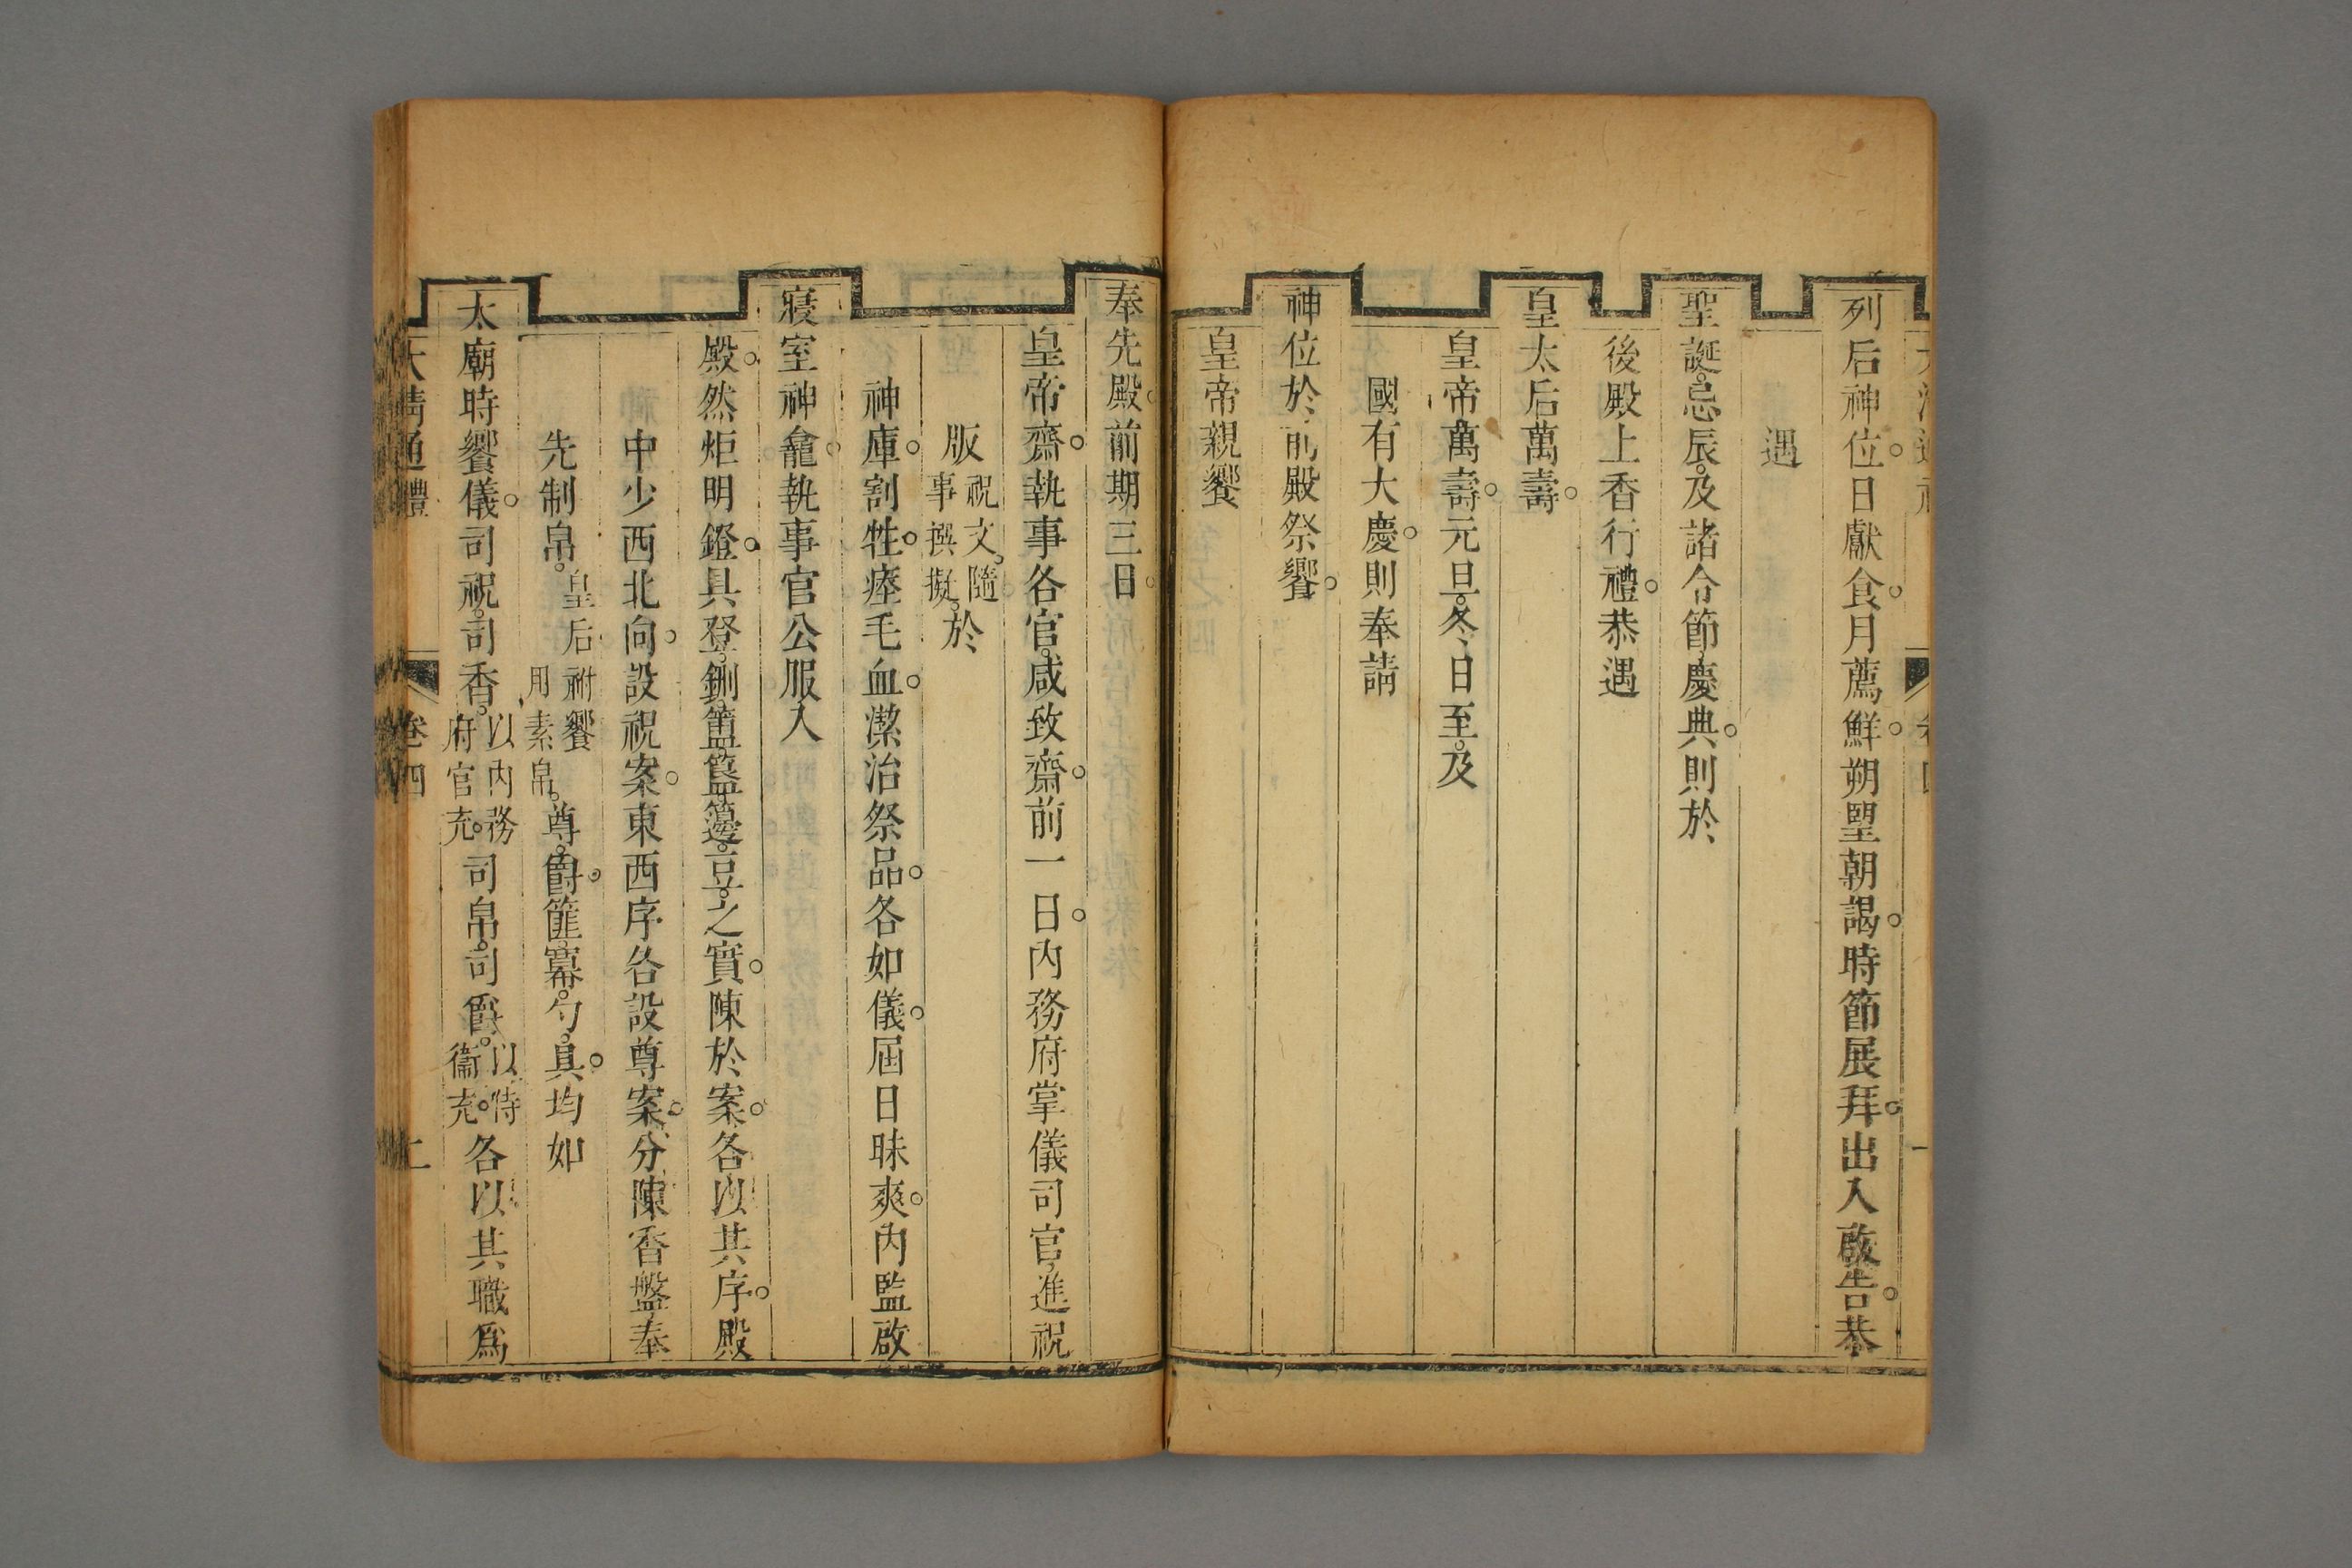 列后神位。日獻食。月薦鮮。朔朢朝謁。時節展拜。出入啟告。恭
遇
聖誕。忌辰。及諸令節慶典。則於
後殿上香行禮。恭遇
皇太后萬壽。
皇帝萬壽。元旦。冬日至。及
國有大慶。則奉請
神位於前殿祭饗。
皇帝親饗
奉先殿。前期三日。
皇帝齋。執事各官。咸致齋。前一日。內務府掌儀司官。進祝
版祝文。隨事撰擬。於
神庫。割牲。瘞毛血。潔治祭品。各如儀。屆日昧爽。內監啟
寢室神龕。執事官公服入
殿。然炬明鐙。具登。鉶。簠。簋。籩。豆。之實。陳於案。各以其序。殿
中少西北向。設祝案。東西序各設尊案。分陳香盤奉
先制帛。皇后祔饗用素帛。尊。爵。篚。冪。勺。具。均如
太廟時饗儀。司祝。司香。以內務府官充。司帛。司爵。以侍衞充。各以其職爲
大清通禮 卷四 二